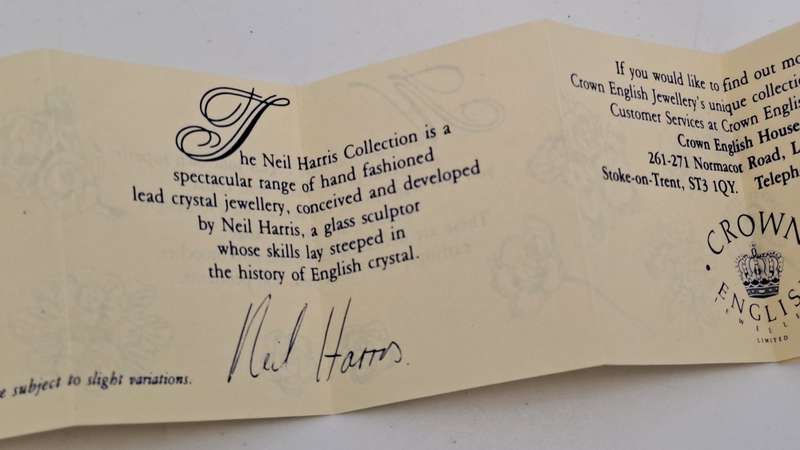 The Neil Harris Collection is a
spectacular range of hand fashioned
lead crystal jewellery, conceived and developed
by Neil Harris, a glass sculptor
whose skills lay steeped in
the history of English crystal.
Neil Harris.
subject to slight variations.
If you would like to find out
Crown English Jewellery's unique
Customer Services at Crown
Crown English House
261-271 Normacot Road,
Stoke-on-Trent, ST3 1QY.
CROWN
ENGLISH
LIMITED